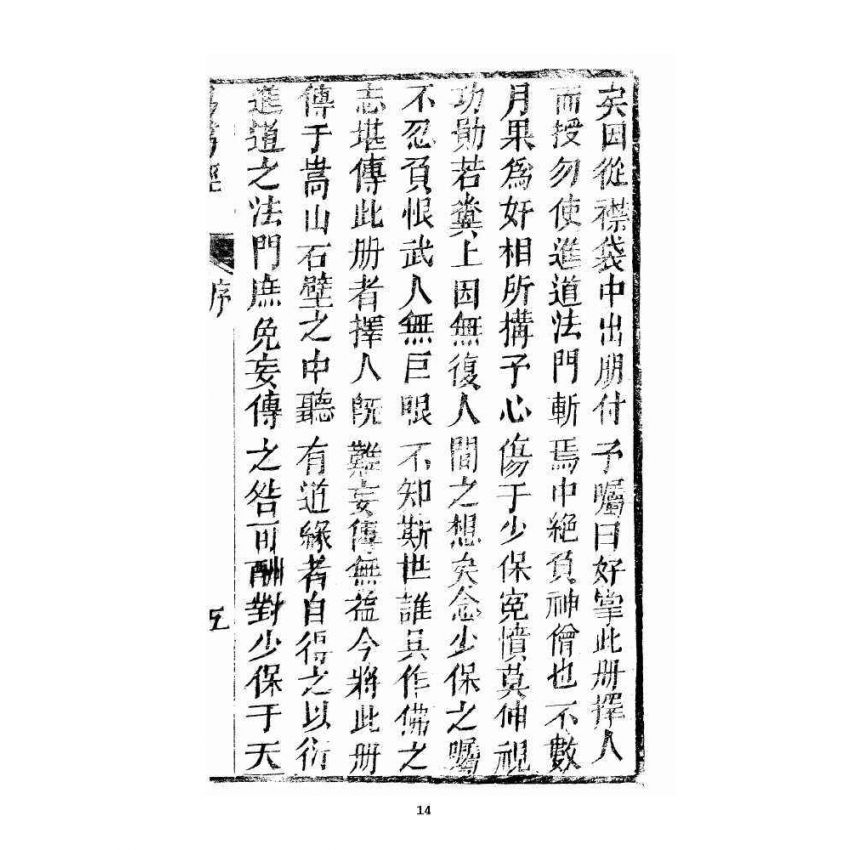 矣因從襟袋中出册付予囑曰好掌此册擇人
而授勿使進道法門斬焉中絶負神僧也不數
月果爲奸相所搆予心傷于少保寃憤莫伸視
功勛若糞土因無復人間之想矣念少保之囑
不忍負恨武人無巨眼不知斯世誰具作佛之
志堪傳此册者擇人旣難妄傳無益今將此册
傳于嵩山石壁之中聽有道緣者自得之以衍
進道之法門庶免妄傳之咎可酬對少保于天
序
14